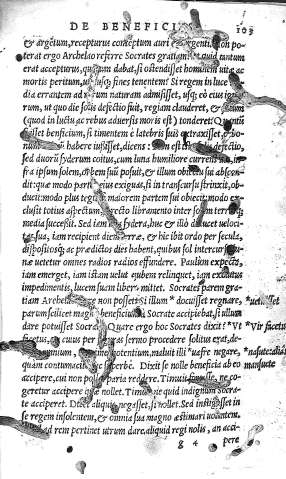 DE BENEFICI 103
& argētum, recepturus conceptum auri & argenti. Non po
terat ergo Archelao referre Socrates gratiam, quid tantum
erat accepturus, quantum dabat, si ostendisset hominem vitæ ac
mortis peritum, utriusque fines tenentem? Si regem in luce
dia errantem ad rerum naturam admisisset, usq; eò eius igna
rum, ut quo die solis defectio fuit, regiam clauderet, & filium
(quod in luctu ac rebus adversis moris est) tonderet? Quantū
fuisset beneficium, si timentem è latebris suis extraxisset, &
animū habere iussisset, dicens: Non est ista solis defectio,
sed duorū syderum coitus, cum luna humiliore currens via, in
fra ipsum solem, orbem suū posuit, & illum obiectu sui abscon
dit: quæ modo partes eius exiguas, si in transcursu strinxit, ob
ducit: modo plus tegit, si maiorem partem sui obiecit: modo ex
cludit totius aspectum, si recto libramento inter solem terrasq;
media successit. Sed iam ista sydera, huc & illò diducet veloci
tas sua, iam recipient diem terræ, & hic ibit ordo per secula,
dispositosq; ac prædictos dies habent, quibus sol intercursu lu
næ uetetur omnes radios effundere. Paulùm expecta,
iam emerget, iam istam uelut nubem relinquet, iam exolutus
impedimentis, lucem suam liberè mittet. Socrates parem gra
tiam Archelao referre non posset, si illum docuisset regnare,
parum scilicet magnū beneficium à Socrate accipiebat, si illum
dare potuisset Socrati? Quare ergo hoc Socrates dixit? *Vt
facetus, & cuius per figuras sermo procedere solitus erat, de-
omnium, potentium, maluit illi *uafre negare,
quàm contumaciter aut superbè. Dixit se nolle beneficia ab eo
accipere, cui non posset paria reddere. Timuit fortasse, ne co-
geretur accipere quæ nollet. Timuit ne quid indignum Socra-
te acciperet. Dicet aliquis, negasset, si nollet. Sed instigasset in
se regem insolentem, & omnia sua magno æstimari uolentem.
Nihil ad rem pertinet utrum dare aliquid regi nolis, an acci
g 4 pere
*Vir facetus
*nasutè: aliàs
mansuetè